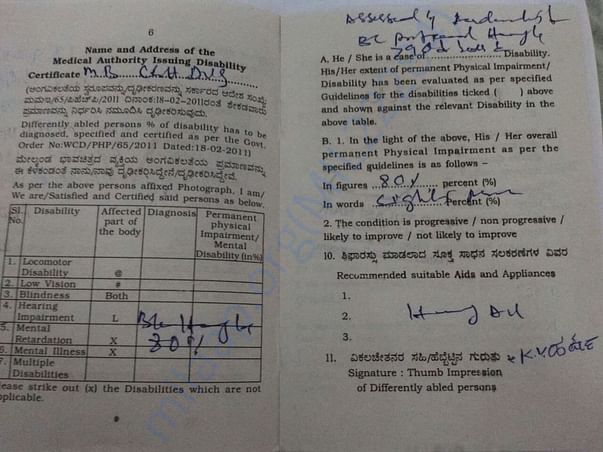 6
Name and Address of the
Medical Authority Issuing Disability
Certificate M.B.
(ಅಂಗವಿಕಲತೆಯ ಸ್ವರೂಪವನ್ನು/ದೃಢೀಕರಣವನ್ನು ಸರ್ಕಾರದ ಆದೇಶ ಸಂಖ್ಯೆ
ಮಮಇ/65/ಪಿಹೆಚ್‌ಪಿ/2011 ದಿನಾಂಕ:18-02-2011ರಂತೆ ಶೇಕಡವಾರು
ಪ್ರಮಾಣವನ್ನು ನಿರ್ಧರಿಸಿ ನಮೂದಿಸಿ ದೃಢೀಕರಿಸುವುದು.
Differently abled persons % of disability has to be
diagnosed, specified and certified as per the Govt.
Order No:WCD/PHP/65/2011 Dated:18-02-2011)
ಮೇಲ್ಕಂಡ ಭಾವಚಿತ್ರದ ವ್ಯಕ್ತಿಯ ಅಂಗವಿಕಲತೆಯ ಪ್ರಮಾಣವನ್ನು
ಈ ಕೆಳಕಂಡಂತೆ ನಾನು/ನಾವು ದೃಢೀಕರಿಸಿದ್ದೇನೆ/ದೃಢೀಕರಿಸಿದ್ದೇವೆ.
As per the above persons affixed Photograph, I am/
We are/Satisfied and Certified said persons as below.
Sl. No. Disability Affected part of the body Diagnosis Permanent physical Impairment/ Mental Disability (in%)
1. Locomotor Disability @
2. Low Vision #
3. Blindness Both
4. Hearing Impairment L
5. Mental Retardation X 80%
6. Mental Illness X
7. Multiple Disabilities
ease strike out (x) the Disabilities which are not
plicable.
Assessed by
A. He / She is a case of Disability.
His/Her extent of permanent Physical Impairment/
Disability has been evaluated as per specified
Guidelines for the disabilities ticked ( ) above
and shown against the relevant Disability in the
above table.
B. 1. In the light of the above, His / Her overall
permanent Physical Impairment as per the
specified guidelines is as follows -
In figures 80% percent (%)
In words Percent (%)
2. The condition is progressive / non progressive /
likely to improve / not likely to improve
10. ಶಿಫಾರಸ್ಸು ಮಾಡಲಾದ ಸೂಕ್ತ ಸಾಧನ ಸಲಕರಣೆಗಳ ವಿವರ
Recommended suitable Aids and Appliances
1.
2.
3.
11. ವಿಕಲಚೇತನರ ಸಹಿ/ಹೆಬ್ಬೆಟ್ಟಿನ ಗುರುತು
Signature : Thumb Impression
of Differently abled persons